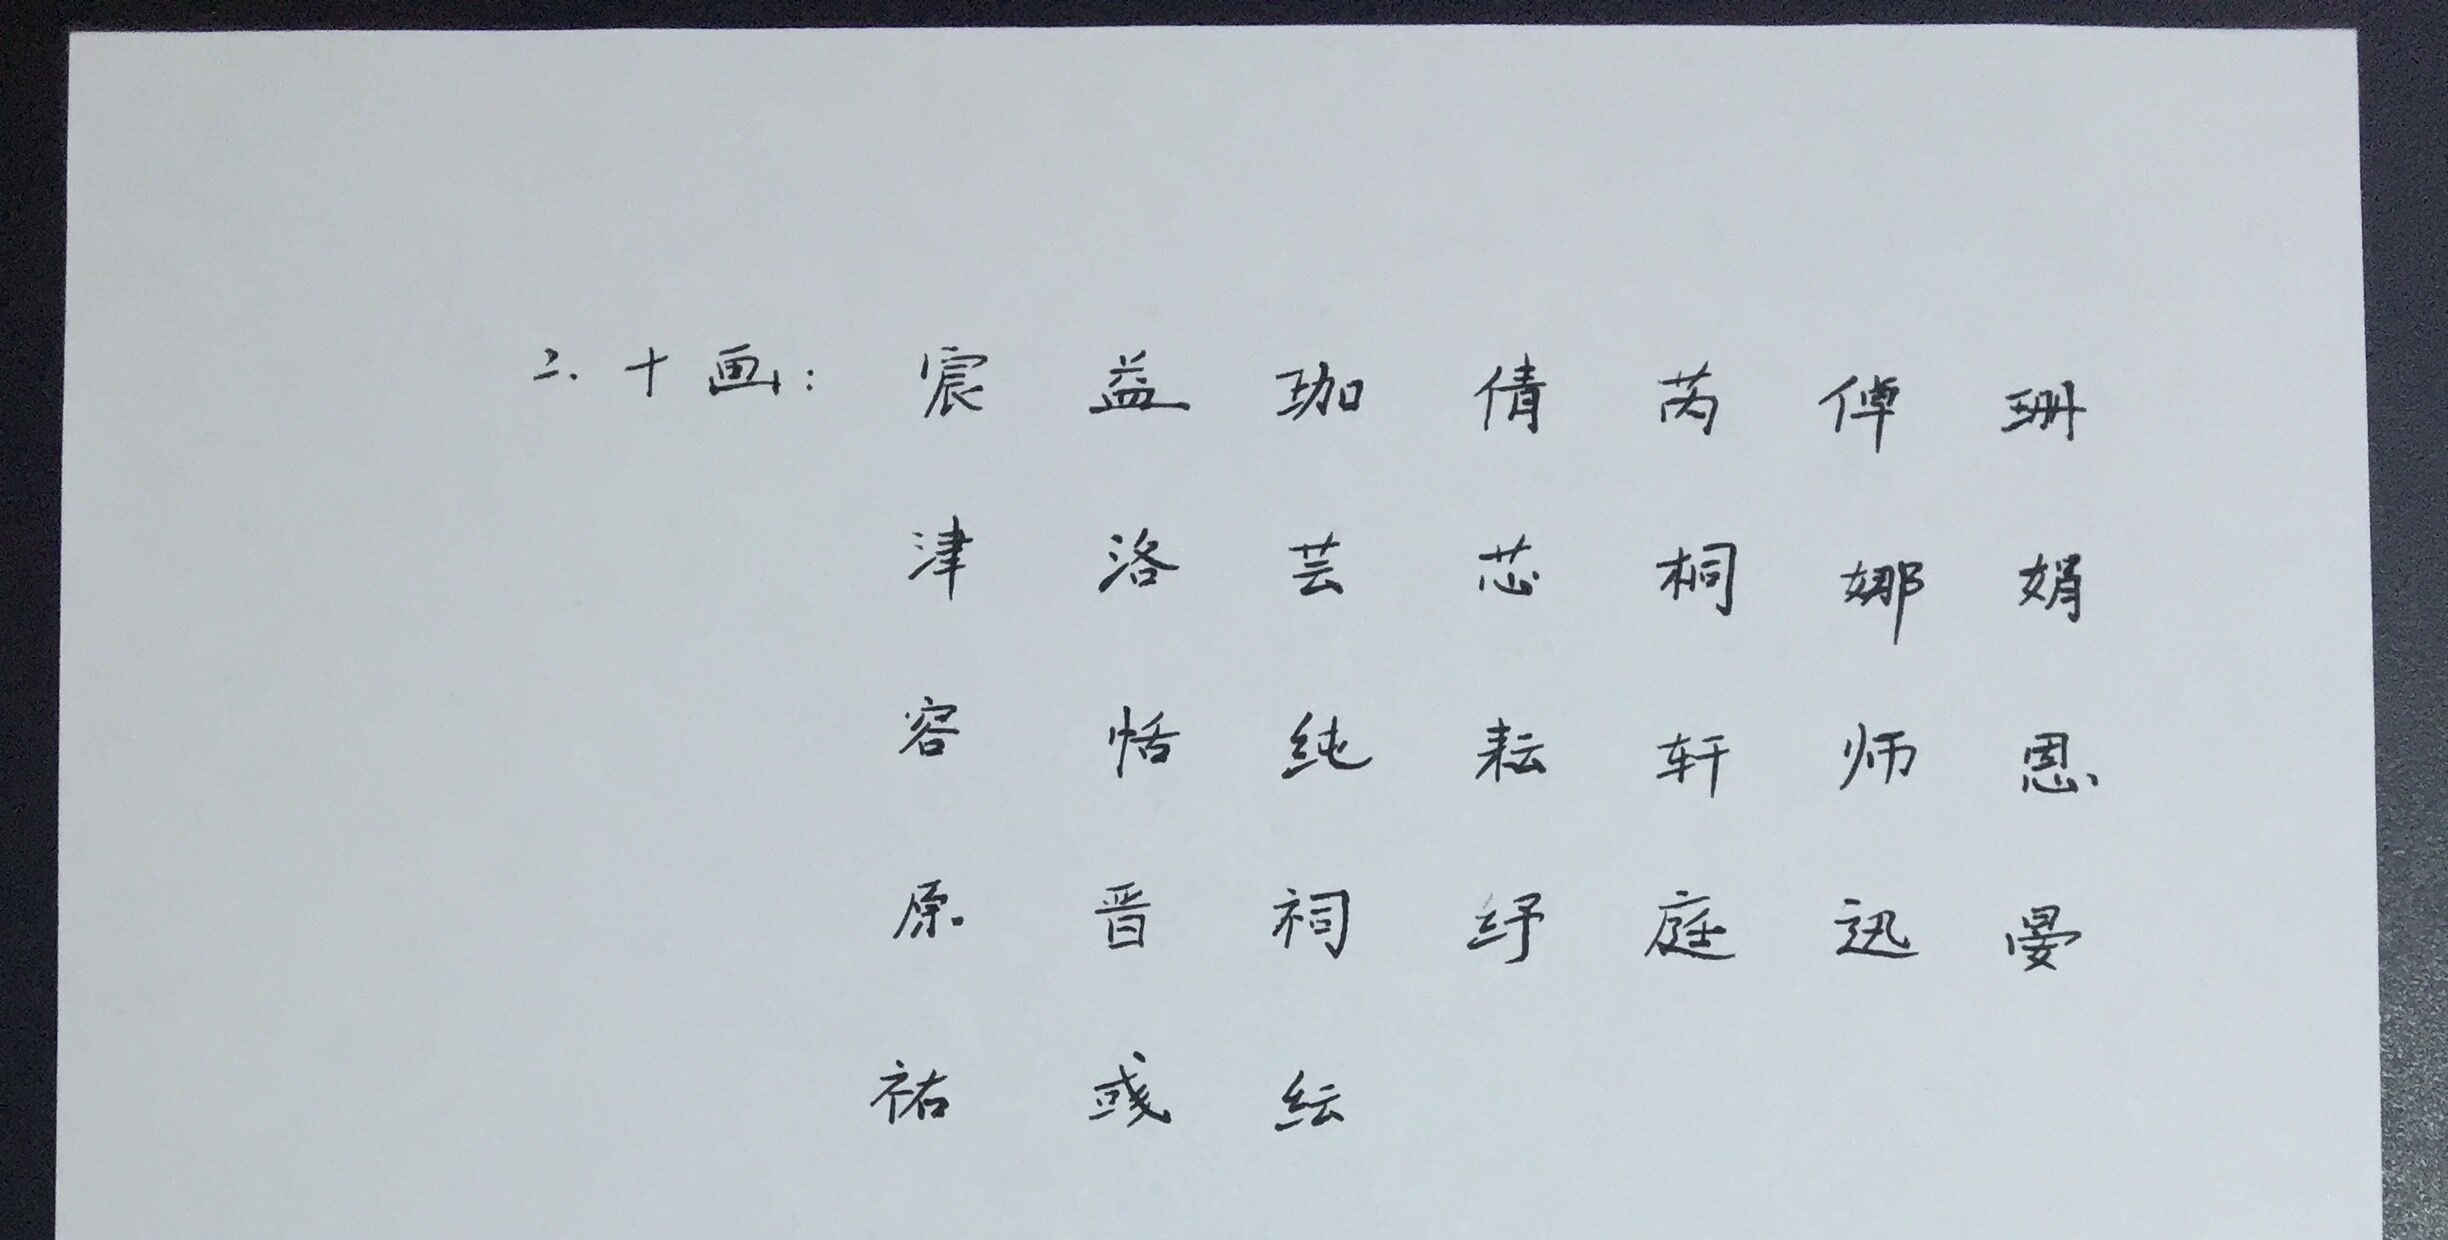 二.十画: 宸 益 珈 倩 芮 倬 珊
津 洛 芸 芯 桐 娜 娟
容 恬 纯 耘 轩 师 恩
原 晋 祠 纾 庭 迅 晏
祐 彧 纭